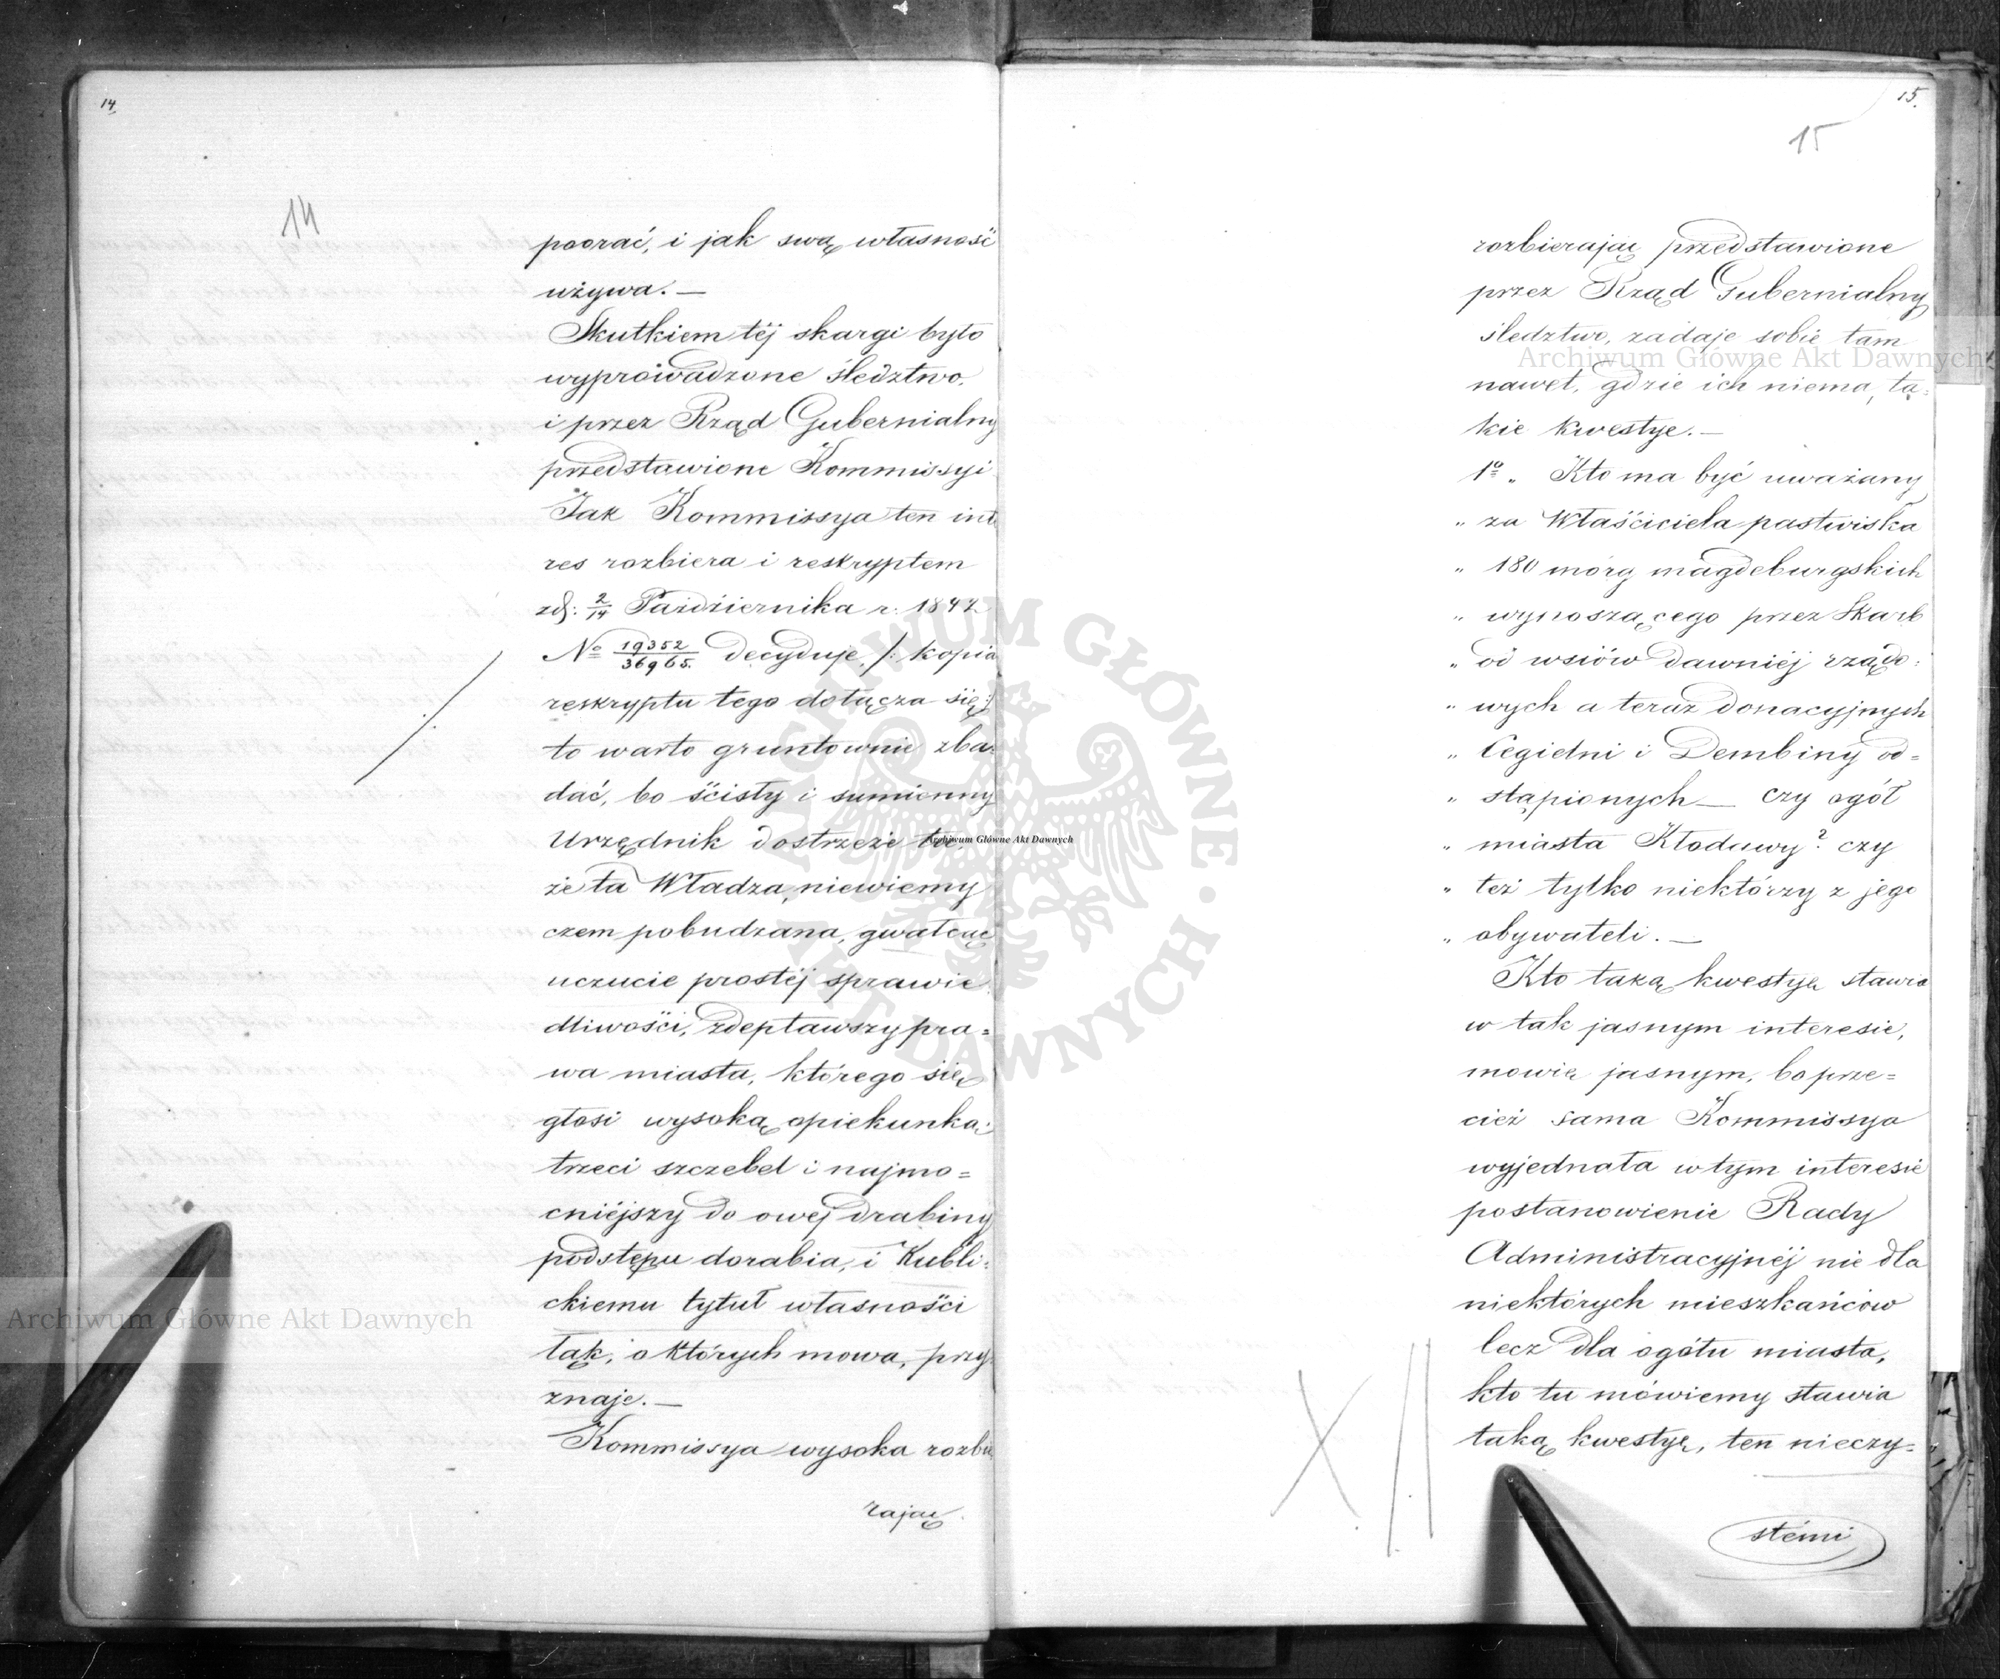 14.
14
poorać, i jak swą własność
używa. —
Skutkiem téj skargi było
wyprowadzone śledztwo.
i przez Rząd Gubernialny
przedstawione Kommissyi
Jak Kommissya ten inte
res rozbiera i reskryptem
zd: 2/14 Października r. 1842
No 19352/36965. decyduje, /: kopia
reskryptu tego dołącza się :/
to warto gruntownie zba-
dać, bo ścisły i sumienny
Urzędnik dostrzeże tu,
że ta Władza, niewiemy
czem pobudzana, gwałcąc
uczucie prostéj sprawie
dliwości, zdeptawszy pra=
wa miasta, którego się
głosi wysoką opiekunką:
trzeci szczebel i najmo=
cniéjszy do owej drabiny
podstępu dorabia, i Kubli:
ckiemu tytuł własności
łąk, o których mowa, przy
znaje. —
Kommissya wysoka rozbie
rając
15.
15
rozbierając przedstawione
przez Rząd Gubernialny
śledztwo, zadaje sobie tam
nawet, gdzie ich niema, ta-
kie kwestye. —
1o „ Kto ma być uważany
„ za Właściciela pastwiska
„ 180 mórg magdeburgskich
„ wynoszącego przez Skarb
„ od wsiów dawniéj rządo:
„ wych a teraz donacyjnych
„ Cegielni i Dembiny od=
„ stąpionych — czy ogół
„ miasta Kłodawy? czy
„ też tylko niektórzy z jego
„ obywateli. —
Kto taką kwestyę stawia
w tak jasnym interesie,
mowię jasnym, bo prze=
cież sama Kommissya
wyjednała w tym interesie
postanowienie Rady
Administracyjnéj nie dla
niektórych mieszkańców
lecz dla ogółu miasta,
kto tu mówiemy stawia
taką kwestyę, ten nieczy=
stémi
XII
Archiwum Główne Akt Dawnych
Archiwum Główne Akt Dawnych
Archiwum Główne Akt Dawnych
ARCHIWUM GŁÓWNE · AKT DAWNYCH ·